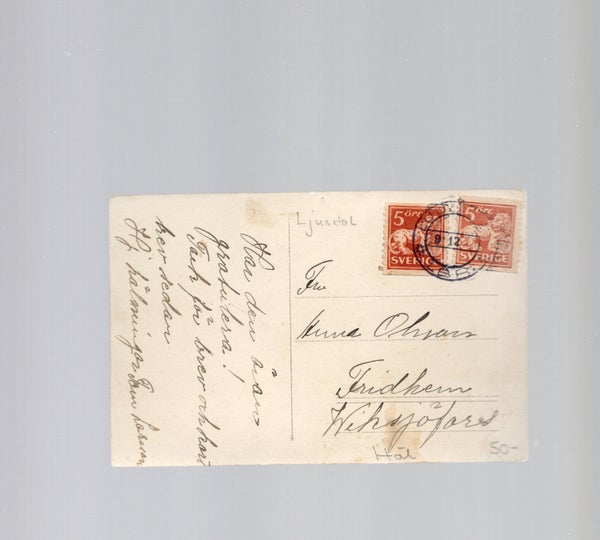 Ljusdal
5 öre
SVERIGE
5 öre
SVERIGE
9 12
Har den äran
gratulera!
Tack för brev och kort
brev sedan
Hj. hälsningar
Fru
Anna Olsson
Fridhem
Wiksjöfors
Hål
50-